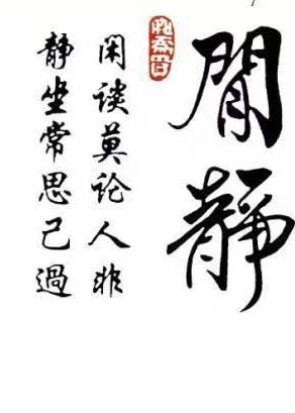 閒靜
闲谈莫论人非
静坐常思己過